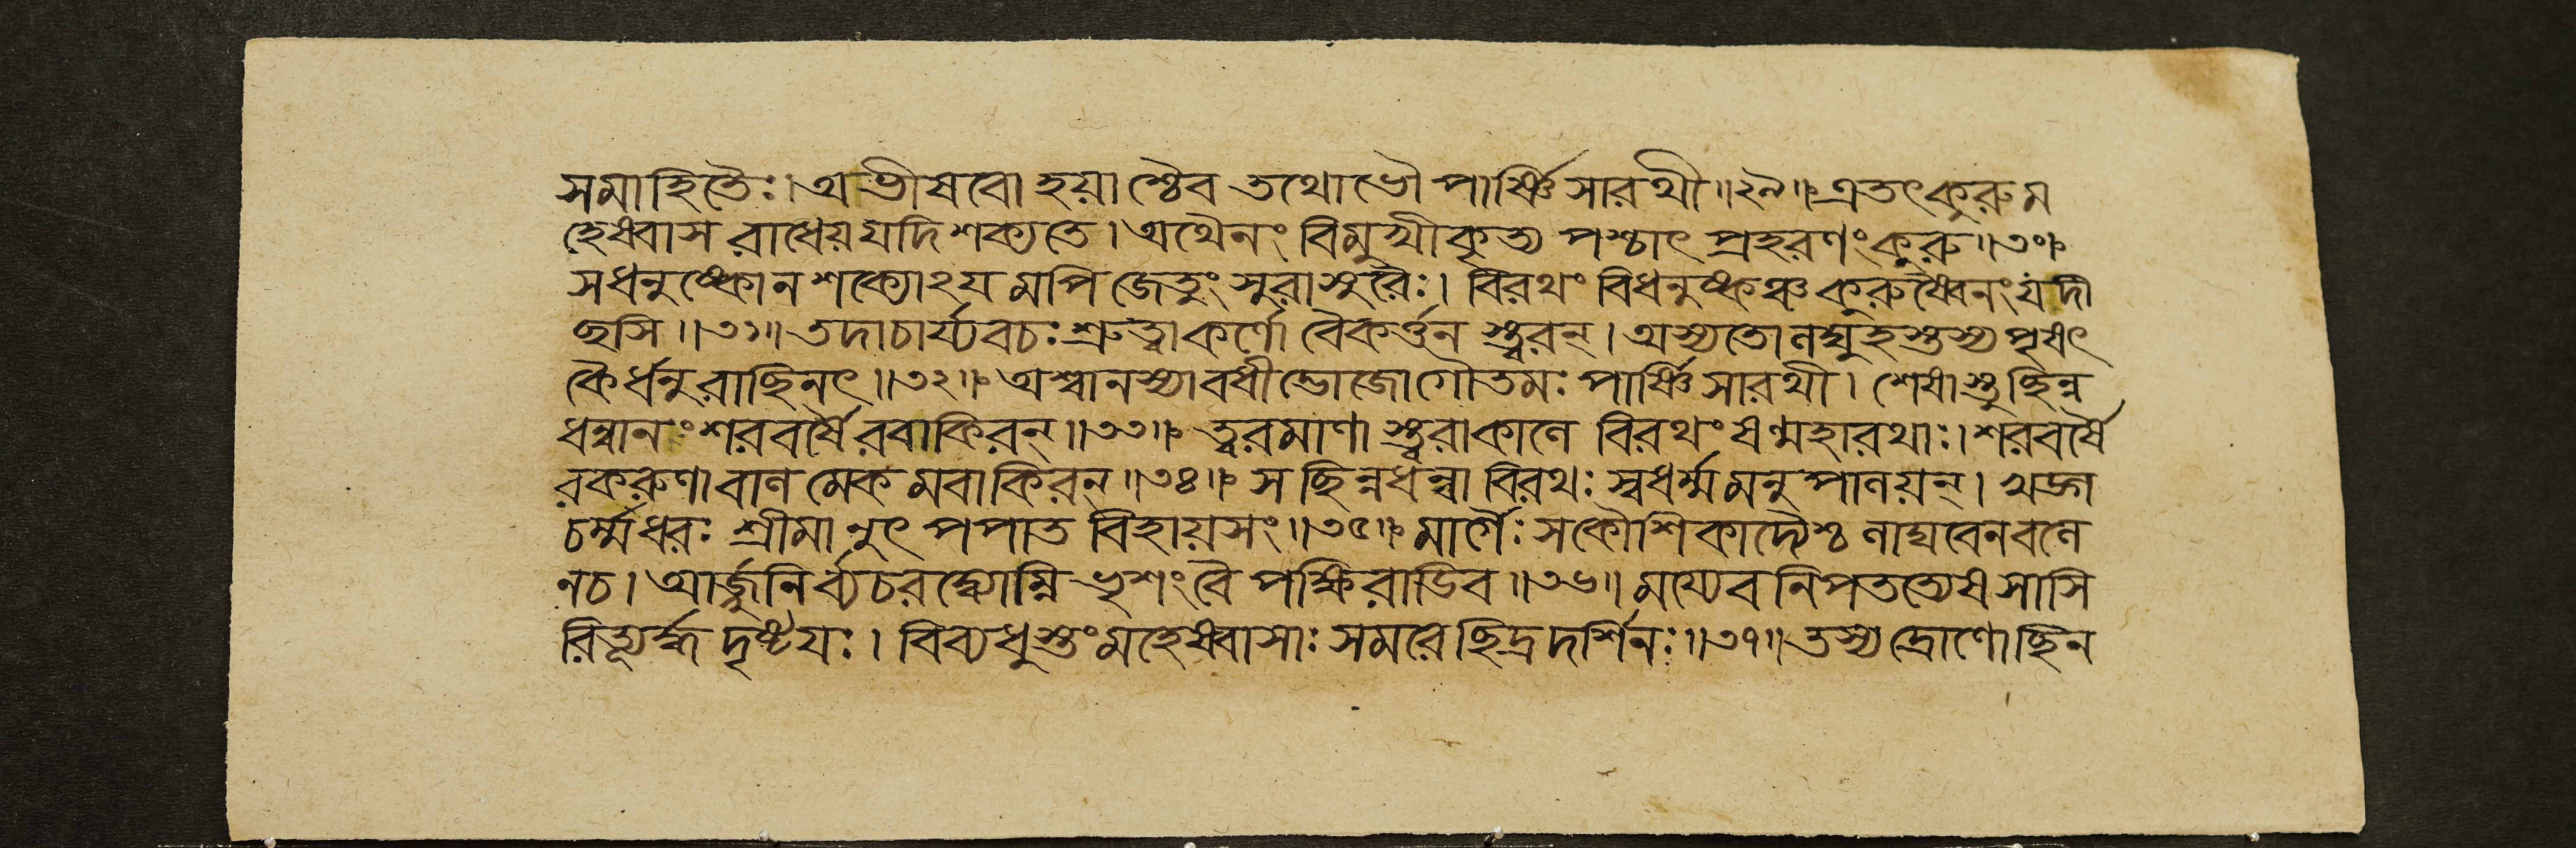 সমাহিতৈঃ। অভীষবো হয়াশ্চৈব তথোভৌ পার্ষ্ণিসারথী॥২৯॥ এতৎ কুরু ম
হেষ্বাস রাধেয় যদি শক্যতে। অথৈনং বিমুখীকৃত্য পশ্চাৎ প্রহরণং কুরু॥৩০॥
সধনুষ্কোন শক্যোঽয়মপি জেতুং সুরাসুরৈঃ। বিরথং বিধনুষ্কঞ্চ কুরুষ্বৈনং যদী
ছসি॥৩১॥ তদাচার্য্যবচঃ শ্রুত্বা কর্ণো বৈকর্ত্তন স্ত্বরন্। অস্যতো লঘুহস্তস্য পৃষৎ
কৈর্ধনুরাছিনৎ॥৩২॥ অশ্বানস্যাবধীদ্ভোজো গৌতমঃ পার্ষ্ণিসারথী। শেষাস্তু ছিন্ন
ধন্বানং শরবর্ষৈ রবাকিরন্॥৩৩॥ ত্বরমাণা স্ত্বরাকালে বিরথং ষণ্মহারথাঃ। শরবর্ষৈ
রকরুণা বাল মেক মবাকিরন্॥৩৪॥ স ছিন্নধন্বা বিরথঃ স্বধর্ম্মমনুপালয়ন্। খড়্গ
চর্ম্মধরঃ শ্রীমানুৎ পপাত বিহায়সং॥৩৫॥ মার্গৈঃ সকৌশিকাদ্যৈশ্চ লাঘবেন বলে
নচ। আর্জ্জুনি র্ব্যচরদ্ব্যোম্নি ভৃশং বৈ পক্ষিরাডিব॥৩৬॥ ময্যেব নিপতত্যেষ সাসি
রিত্যূর্দ্ধ্ব দৃষ্টয়ঃ। বিব্যধুস্তং মহেষ্বাসাঃ সমরে ছিদ্রদর্শিনঃ॥৩৭॥ তস্য দ্রোণোছিন